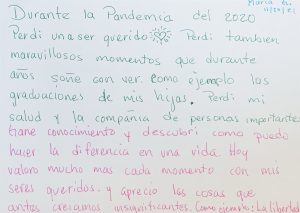 Maria G.
11/20/21
Durante la Pandemia del 2020
Perdi una ser querido Perdi tambien
maravillosos momentos que durante
años soñe con ver. Como ejemplo las
graduaciones de mis hijas. Perdi mi
salud y la compania de personas importantes
tiene conocimiento y descubri como puedo
hacer la diferencia en una vida. Hoy
valoro mucho mas cada momento con mis
seres queridos. y aprecio las cosas que
antes creiamos insignificantes. Como ejemplo: La libertad